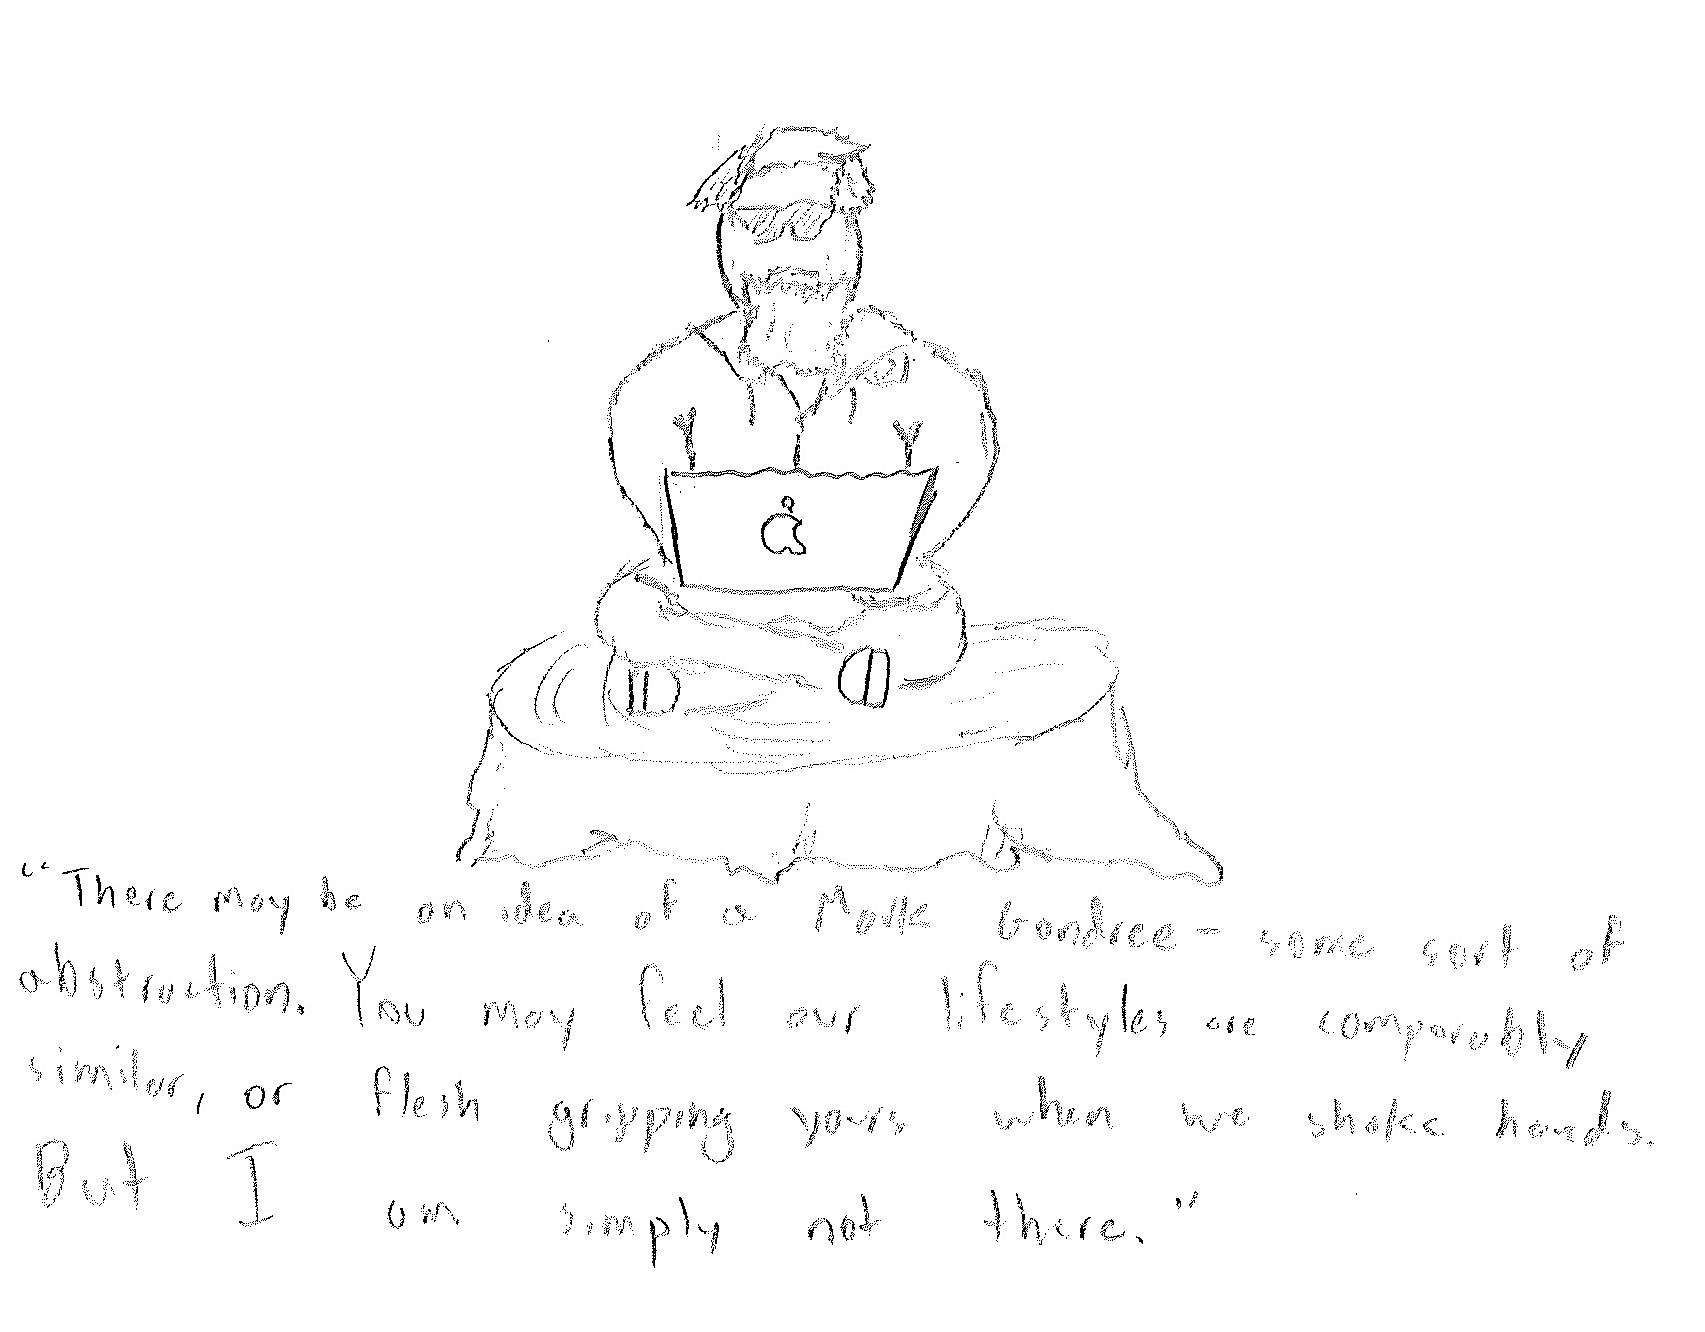 "There may be an idea of a Mark Gondree - some sort of
abstraction. You may feel our lifestyles are comparably
similar, or flesh gripping yours when we shake hands.
But I am simply not there."